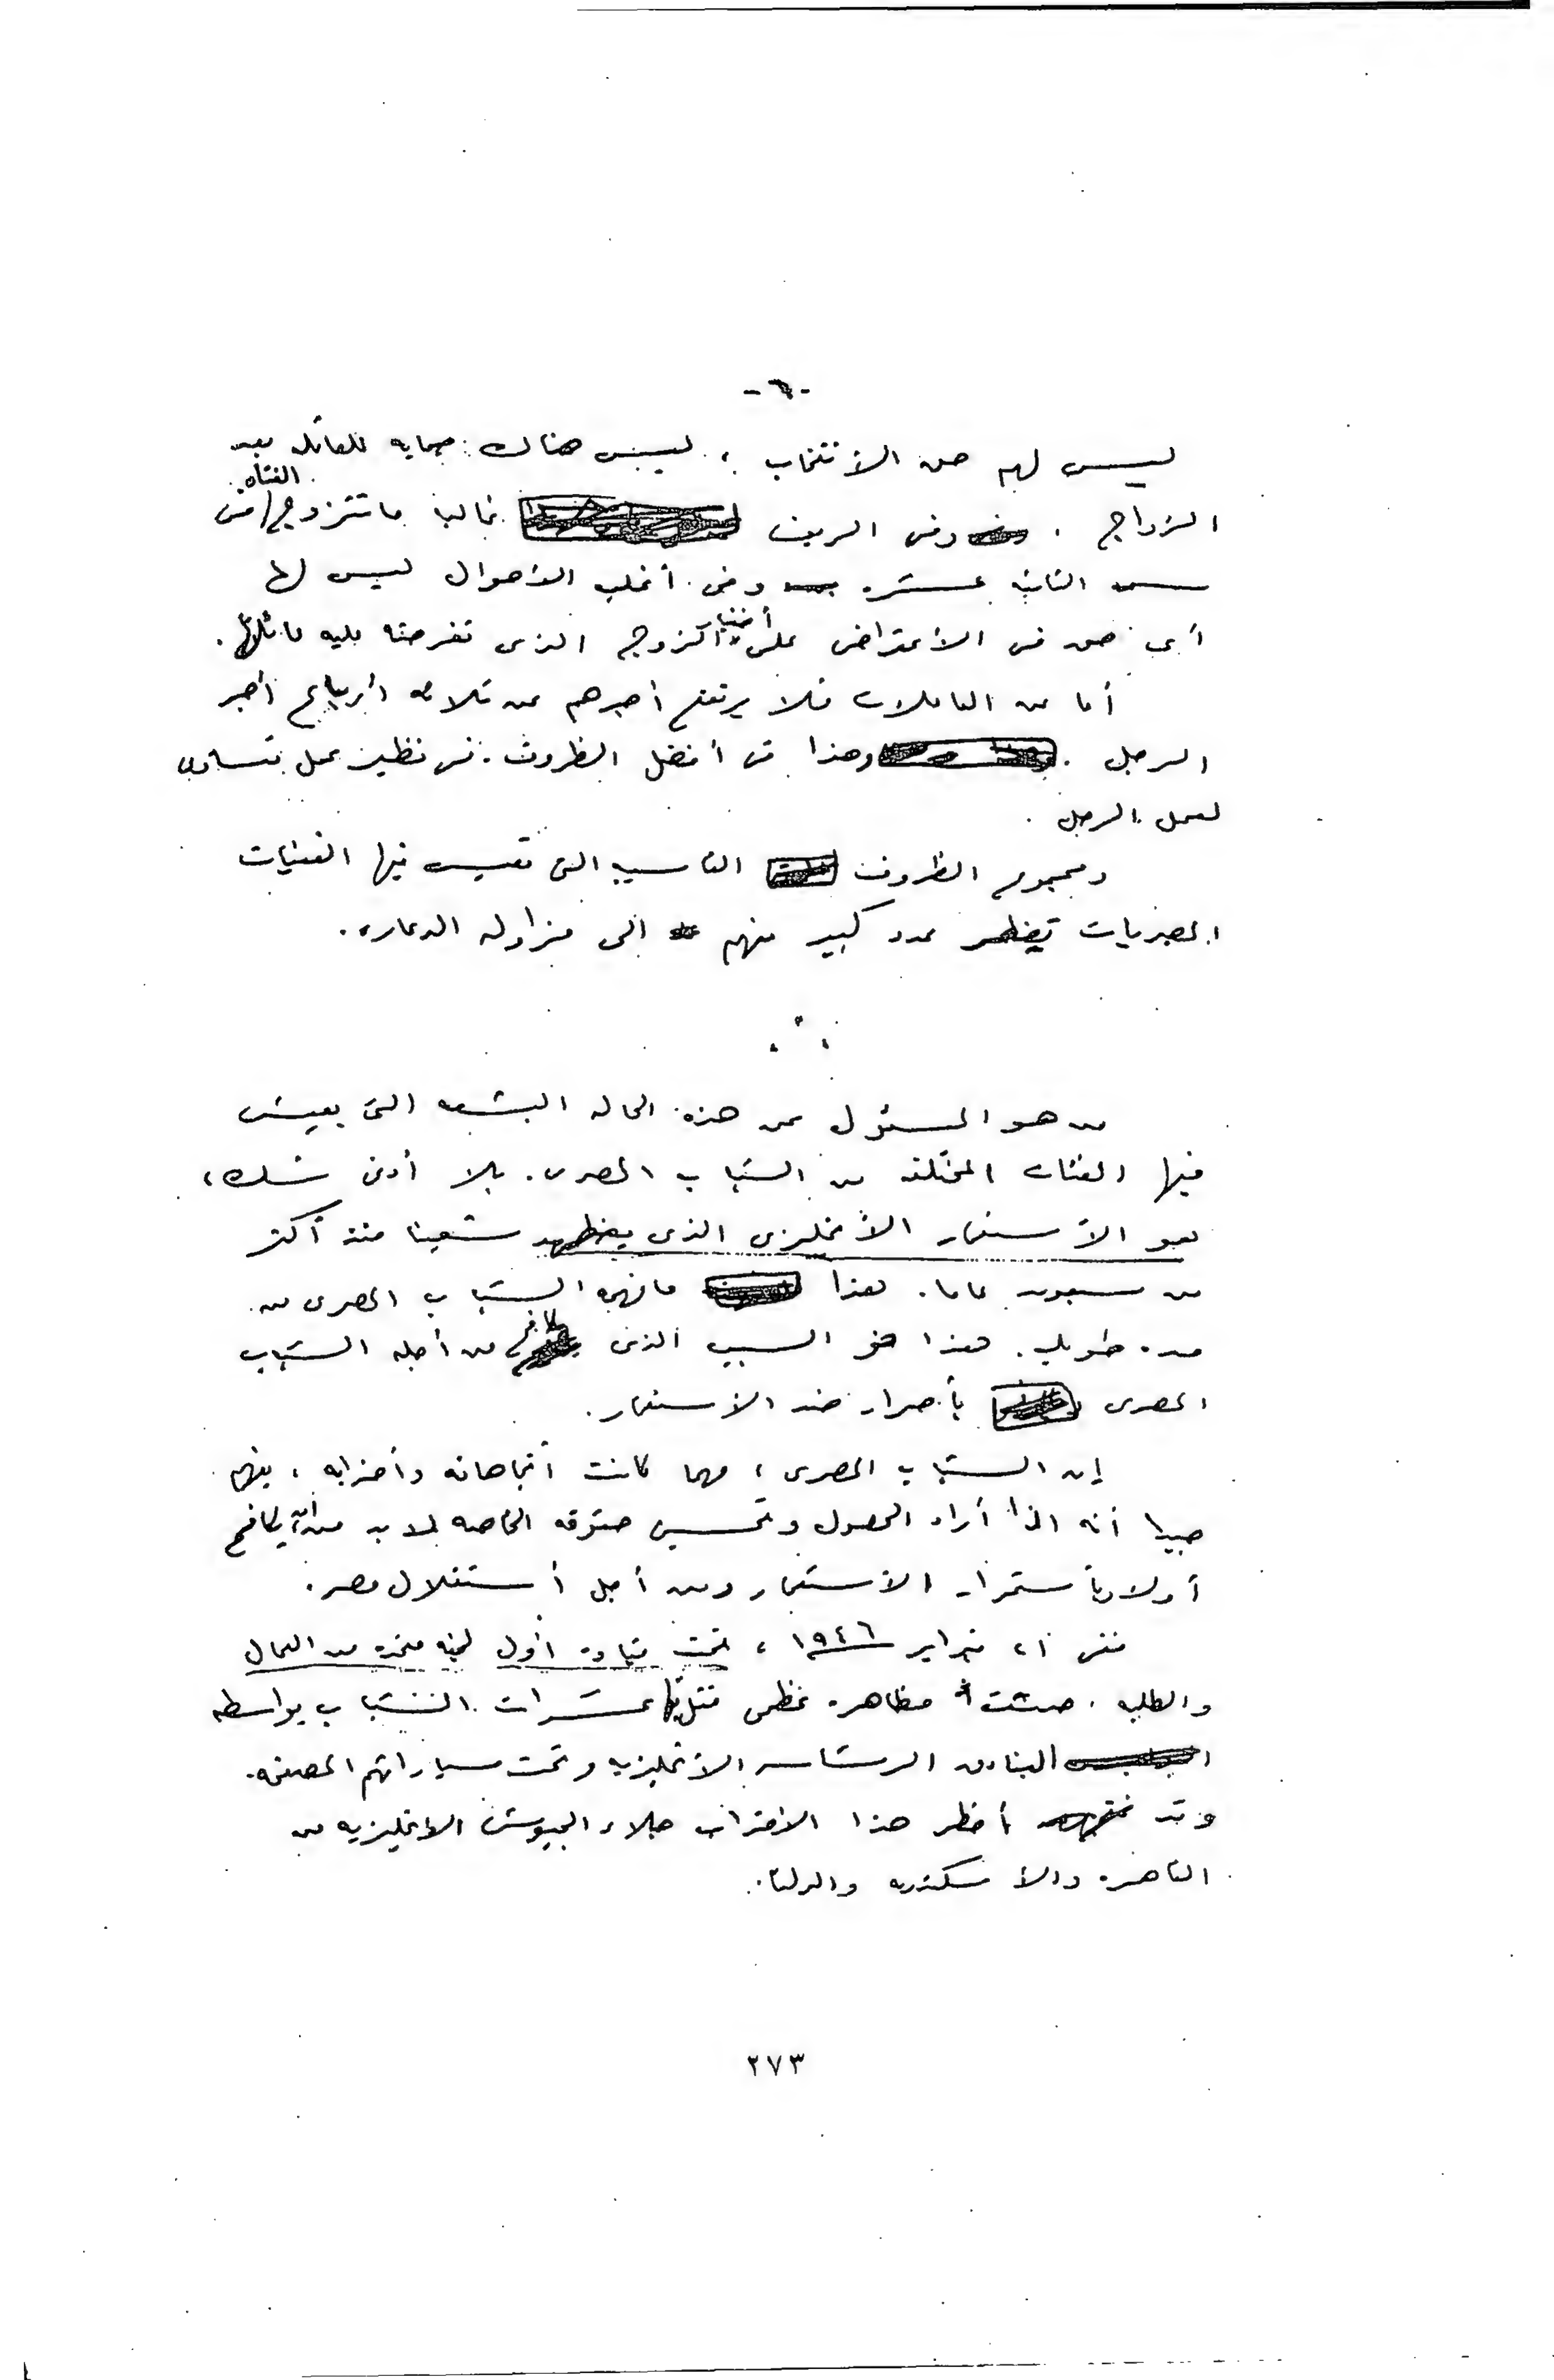 -٦-
ليس لهم حق الأنتخاب ، ليس هناك حمايه للعائله بعد
الزواج . وفى الريف غالبا ما تتزوج الفتاه فى
سن الثانيه عشره وفى أغلب الأحوال ليس لها
أى حق فى الأعتراض على أختيار الزوج الذى تفرضه عليه عائلتها .
أما عن العاملات فلا يرتفع أجرهم عن ثلاثة أرباع أجر
الرجل . وهذا فى أفضل الظروف . فى نظير عمل تساوى
لعمل الرجل .
ومجموع الظروف القاسيه التى تعيش فيها الفتيات
المصريات تضطر عدد كبير منهم الى مزاوله الدعاره .
من هو المسئول عن هذه الحاله البشعه التى يعيش
فيها الفئات المختلفه من الشباب المصرى . بلا أدنى شك ،
هو الأستعمار الأنجليزى الذى يضطهد شعبنا منذ أكثر
من سبعون عاما . هذا مافهمه الشباب المصرى من
مده طويله . هذا هو السبب الذى يكافح من أجله الشباب
المصرى بأصرار ضد الأستعمار .
إن الشباب المصرى ، مهما كانت أتجاهاته وأحزابه ، يفهم
جيدا أنه اذا أراد الحصول وتحسين حقوقه الخاصه لابد من أن يكافح
أولا بأستمرار الأستعمار ومن أجل أستقلال مصر .
ففى ٢١ فبراير ١٩٤٦ ، تحت قياده أول لجنه متحده من العمال
والطلبه . حدثت مظاهره عظمى قتل فيها عشرات الشباب بواسطه
البنادق الرشاشه الأنجليزيه وتحت سياراتهم المصفحه .
وقد أضطر هذا الأضراب جلاء الجيوش الإنجليزيه من
القاهره والأسكندريه والدلتا .
٢٧٣